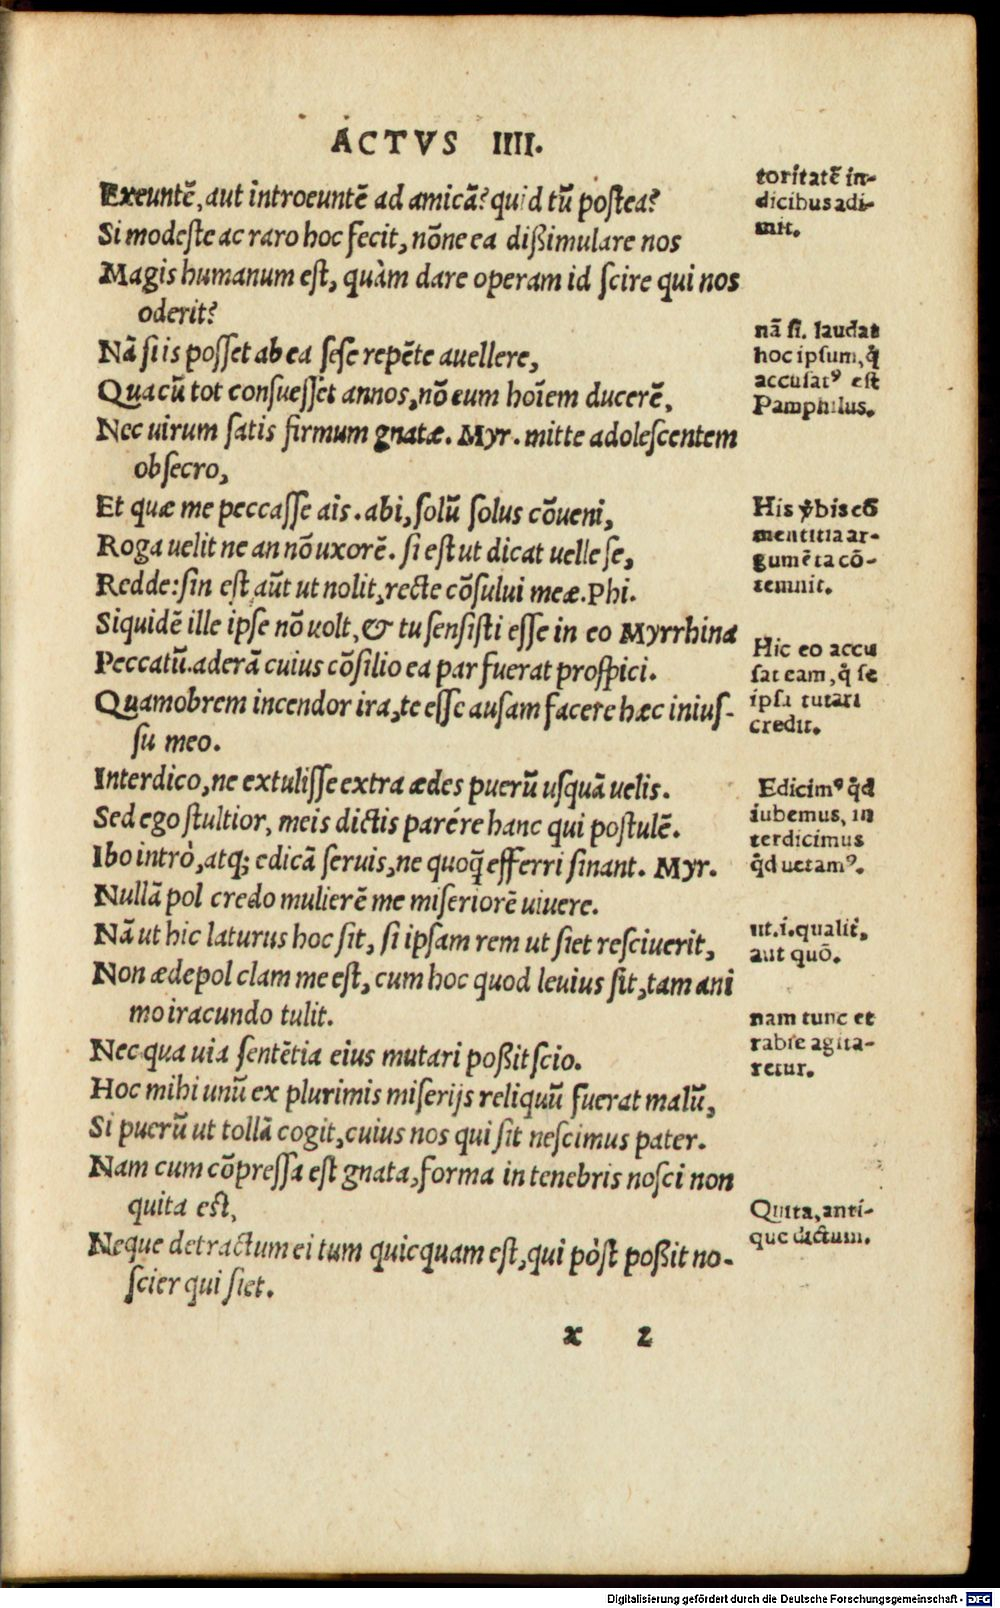 ACTVS IIII.
Exeuntē, aut introeuntē ad amicā? quid tū postea?
Si modeste ac raro hoc fecit, nōne ea dißimulare nos
Magis humanum est, quàm dare operam id scire qui nos
oderit?
Nā si is posset ab ea sese repēte auellere,
Quacū tot consuesset annos, nō eum hoīem ducerē,
Nec uirum satis firmum gnatæ. Myr. mitte adolescentem
obsecro,
Et quæ me peccasse ais. abi, solū solus cōueni,
Roga uelit ne an nō uxorē. si est ut dicat uelle se,
Redde: sin est aūt ut nolit, recte cōsului meæ. Phi.
Siquidē ille ipse nō uolt, & tu sensisti esse in eo Myrrhina
Peccatū. aderā cuius cōsilio ea par fuerat prospici.
Quamobrem incendor ira, te esse ausam facere hæc inius-
su meo.
Interdico, ne extulisse extra ædes puerū usquā uelis.
Sed ego stultior, meis dictis parére hanc qui postulē.
Ibo intrò, atq; edicā seruis, ne quoq̄ efferri sinant. Myr.
Nullā pol credo mulierē me miseriorē uiuere.
Nā ut hic laturus hoc sit, si ipsam rem ut siet resciuerit,
Non ædepol clam me est, cum hoc quod leuius sit, tam ani
mo iracundo tulit.
Nec qua uia sentētia eius mutari poßit scio.
Hoc mihi unū ex plurimis miserijs reliquū fuerat malū,
Si puerū ut tollā cogit, cuius nos qui sit nescimus pater.
Nam cum cōpressa est gnata, forma in tenebris nosci non
quita est,
Neque detractum ei tum quicquam est, qui pòst poßit no-
scier qui siet.
x 2
toritatē in-
dicibus adi-
mit.
nā si. laudat
hoc ipsum, q̄
accusatꝰ est
Pamphilus.
His v̄bis eō
mentitia ar-
gumēta cō-
temnit.
Hic eo accu
sat eam, q̄ se
ipsa tutari
credit.
Edicimꝰ q̄d
iubemus, in
terdicimus
q̄d uetamꝰ.
ut. i. qualit̄,
aut quō.
nam tunc et
rabie agita-
retur.
Quita, anti-
que dictum.
Digitalisierung gefördert durch die Deutsche Forschungsgemeinschaft - DFG